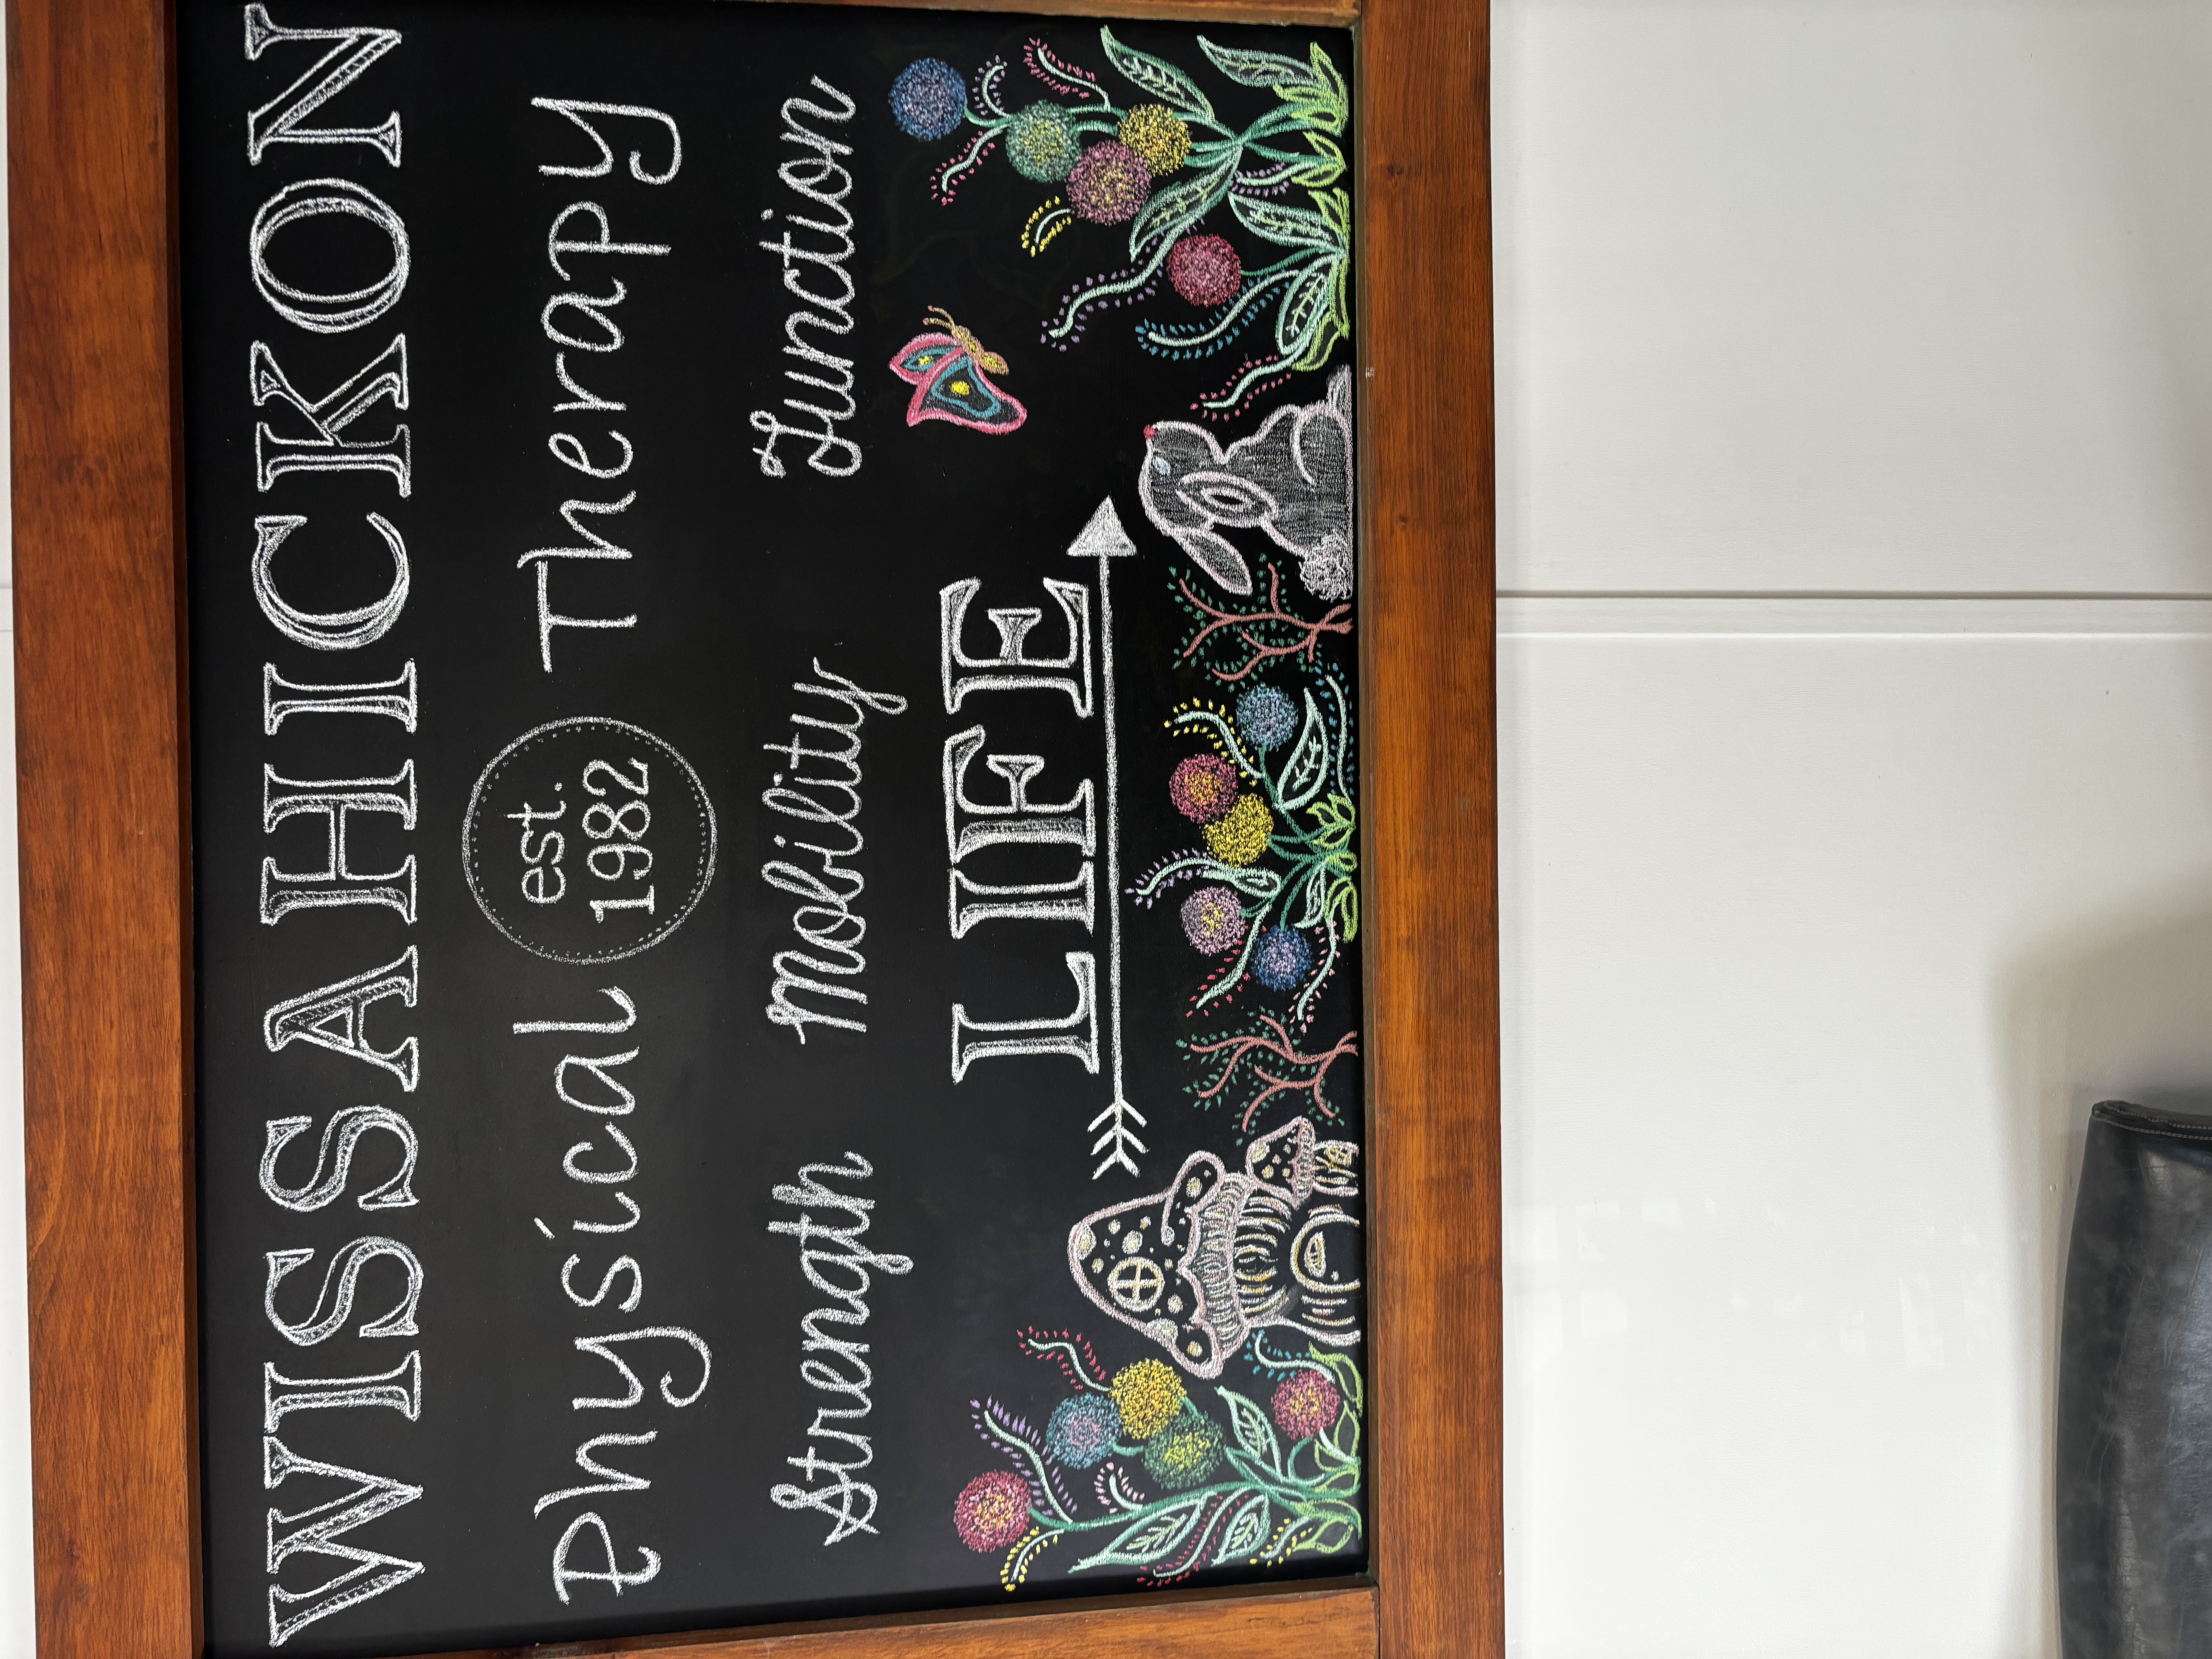 WISSAHICKON
Physical est. 1982 Therapy
Strength Mobility Function
LIFE